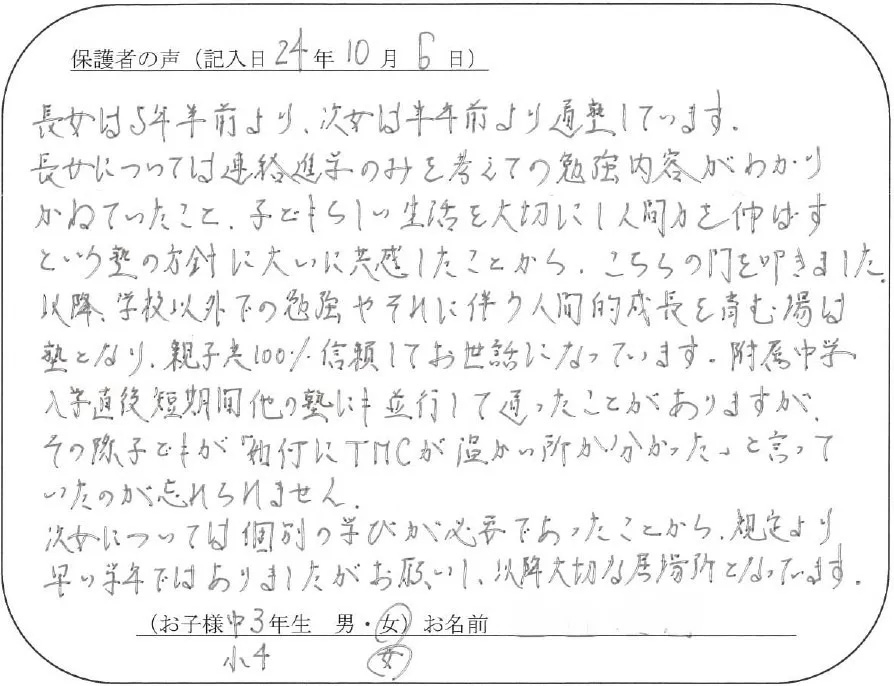 保護者の声（記入日24年10月6日）
長女は5年半前より、次女は半年前より通塾しています。
長女については連絡進学のみを考えての勉強内容がわかり
かねていたこと、子どもらしい生活を大切にし人間力を伸ばす
という塾の方針に大いに共感したことから、こちらの門を叩きました。
以降、学校以外での勉強やそれに伴う人間的成長を育む場は
塾となり、親子共100%信頼してお世話になっています。附属中学
入学直後短期間他の塾にも並行して通ったことがありますが、
その際子どもが「如何にTMCが温かい所か分かった」と言って
いたのが忘れられません。
次女については個別の学びが必要であったことから、規定より
早い学年ではありましたがお願いし、以降大切な居場所となっています。
（お子様中3年生　男・女）お名前
小4　女